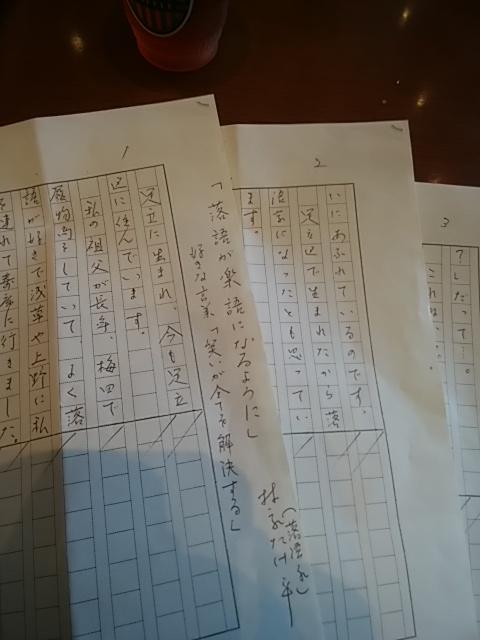 1
「落語が楽語になるように」
好きな言葉「笑が全てを解決する」
(落語家)
林家たけ平
足立に生まれ、今も足立
区に住んでいます。
私の祖父が長年、梅田で
履物商をしていて、よく落
語が好きで浅草や上野に私
を連れて寄席に行きました。
2
いにあふれているのです。
足立区で生まれたから落
語家になったとも思ってい
ます。
3